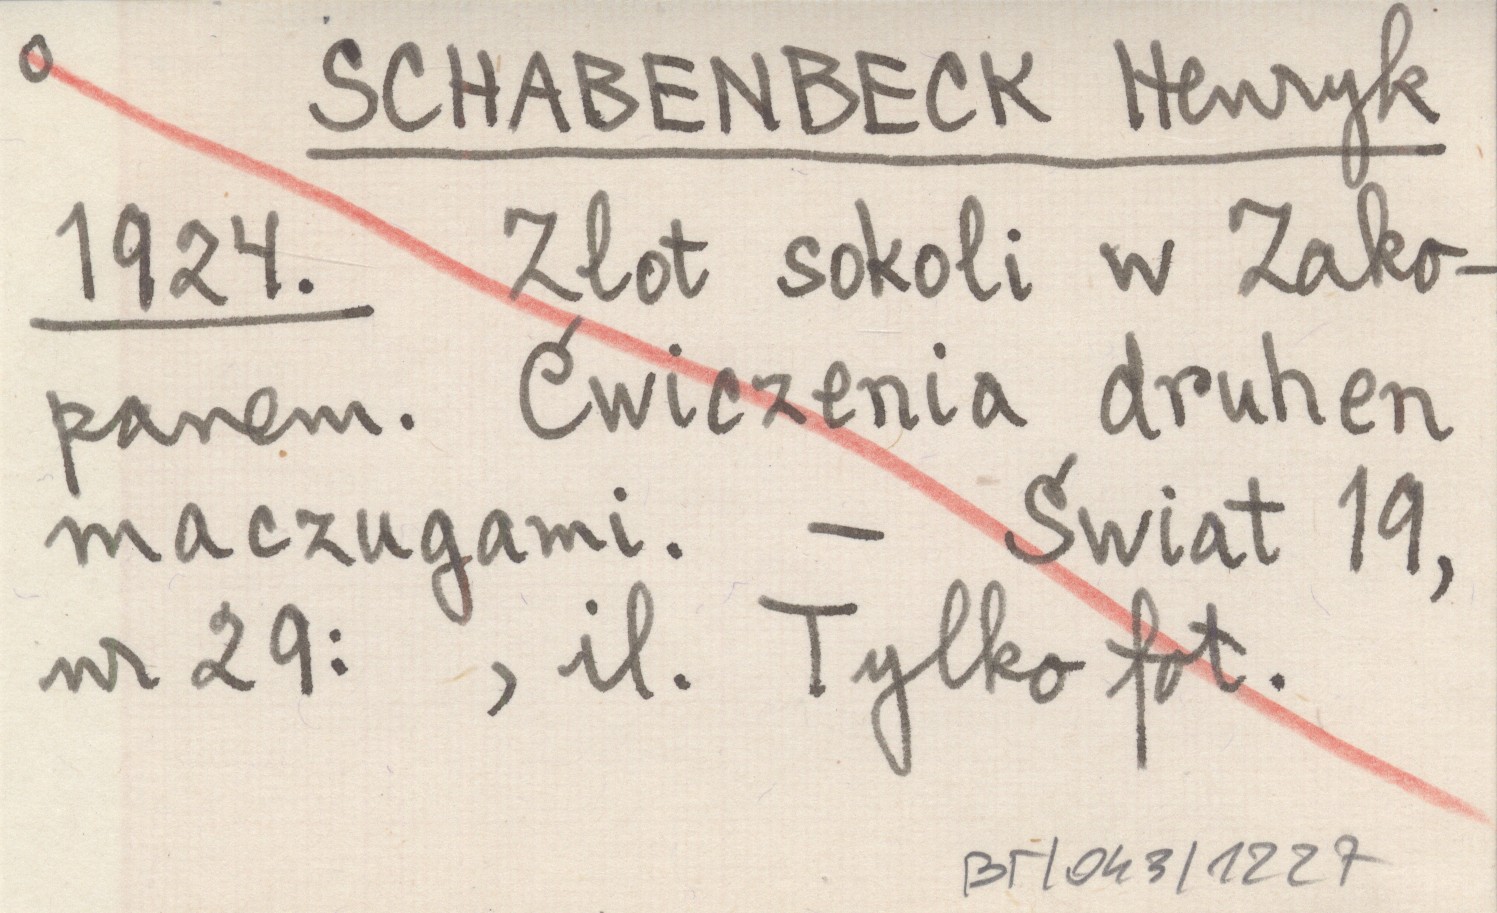 SCHABENBECK Henryk
1924. Zlot sokoli w Zako-
panem. Ćwiczenia druhen
maczugami. - Świat 19,
nr 29: , il. Tylko fot.
BT/043/1227